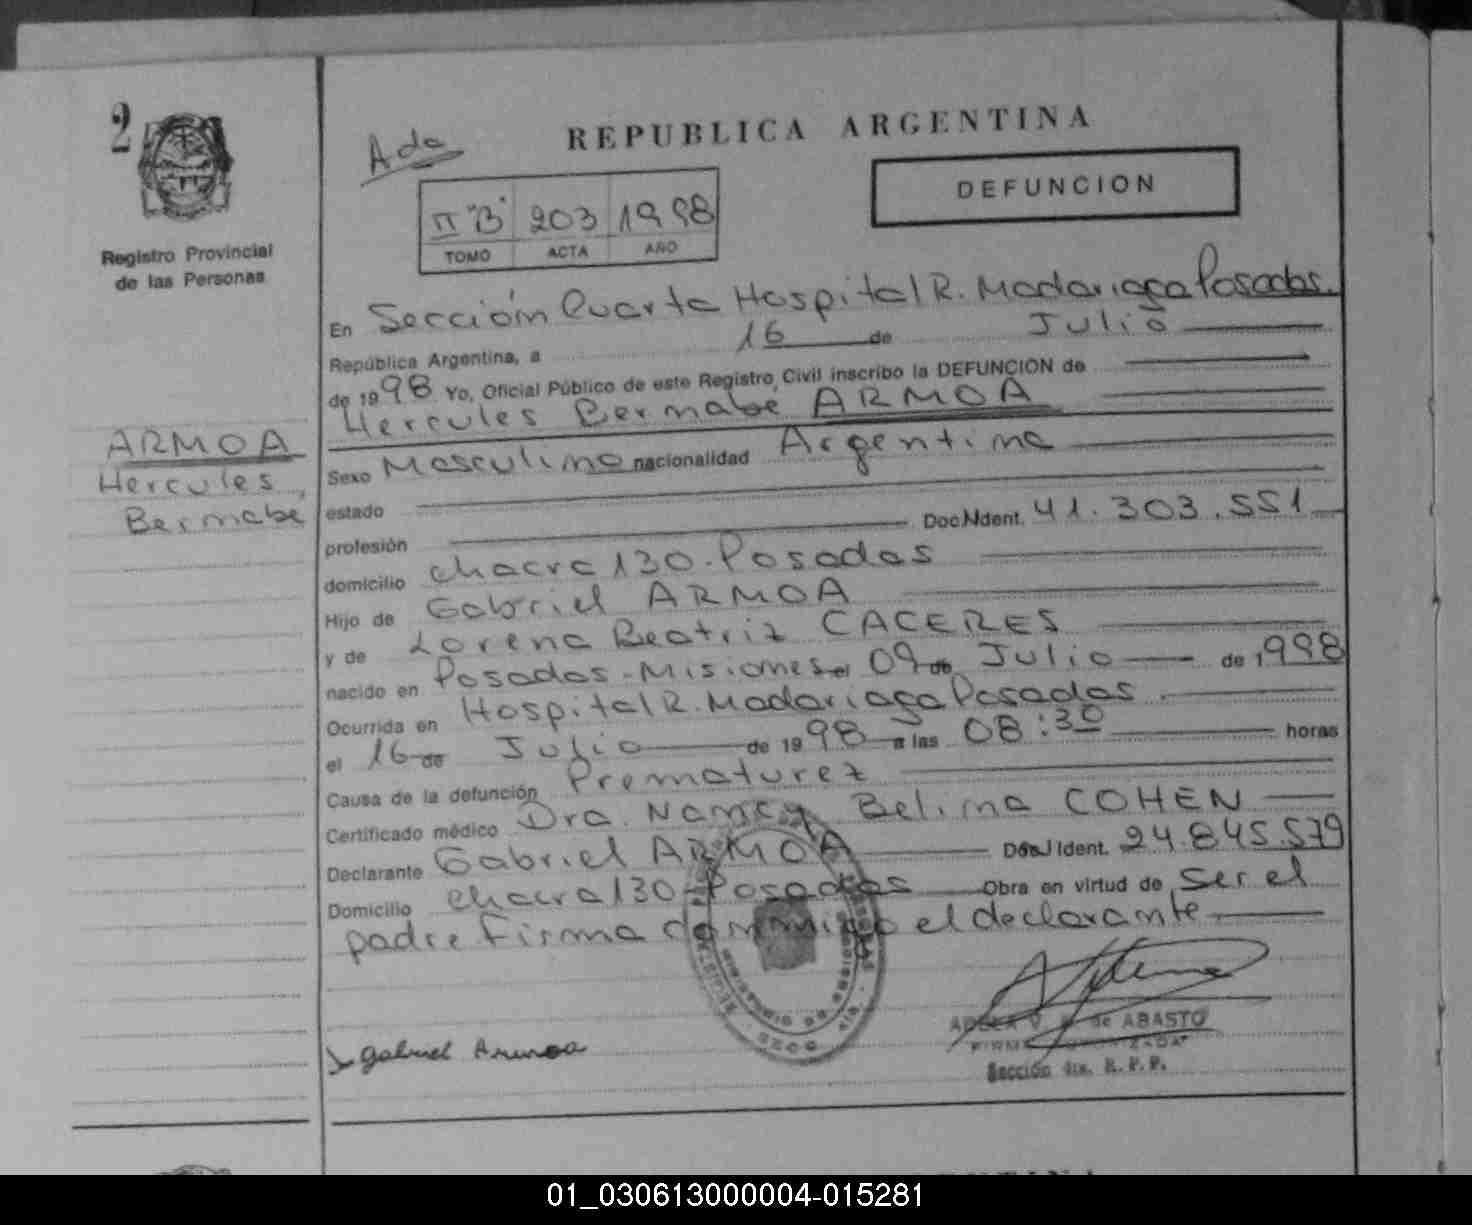 2
Registro Provincial
de las Personas
ARMOA
Hercules
Bernabe
Ada
REPUBLICA ARGENTINA
DEFUNCION
π "B" 203 1998
TOMO ACTA AÑO
En Sección Cuarta Hospital R. Madariaga Posadas.
República Argentina, a 16 de Julio
de 1998 Yo, Oficial Público de este Registro Civil inscribo la DEFUNCION de
Hercules Bernabe ARMOA
Sexo Masculino nacionalidad Argentina
estado
profesión Doc. N Ident. 41.303.551
domicilio chacra 130. Posadas
Hijo de Gabriel ARMOA
y de Lorena Beatriz CACERES
nacido en Posadas - Misiones el 09 de Julio de 1998
Ocurrida en Hospital R. Madariaga Posadas.
el 16 de Julio de 1998 a las 08:30 horas
Causa de la defunción Prematurez
Certificado médico Dra. Nancy Belina COHEN
Declarante Gabriel ARMOA Doc. Ident. 24.845.579
Domicilio chacra 130 - Posadas Obra en virtud de ser el
padre firma conmigo el declarante
gabriel Armoa
de ABASTO
Sección 4ta. R. P. P.
01_030613000004-015281